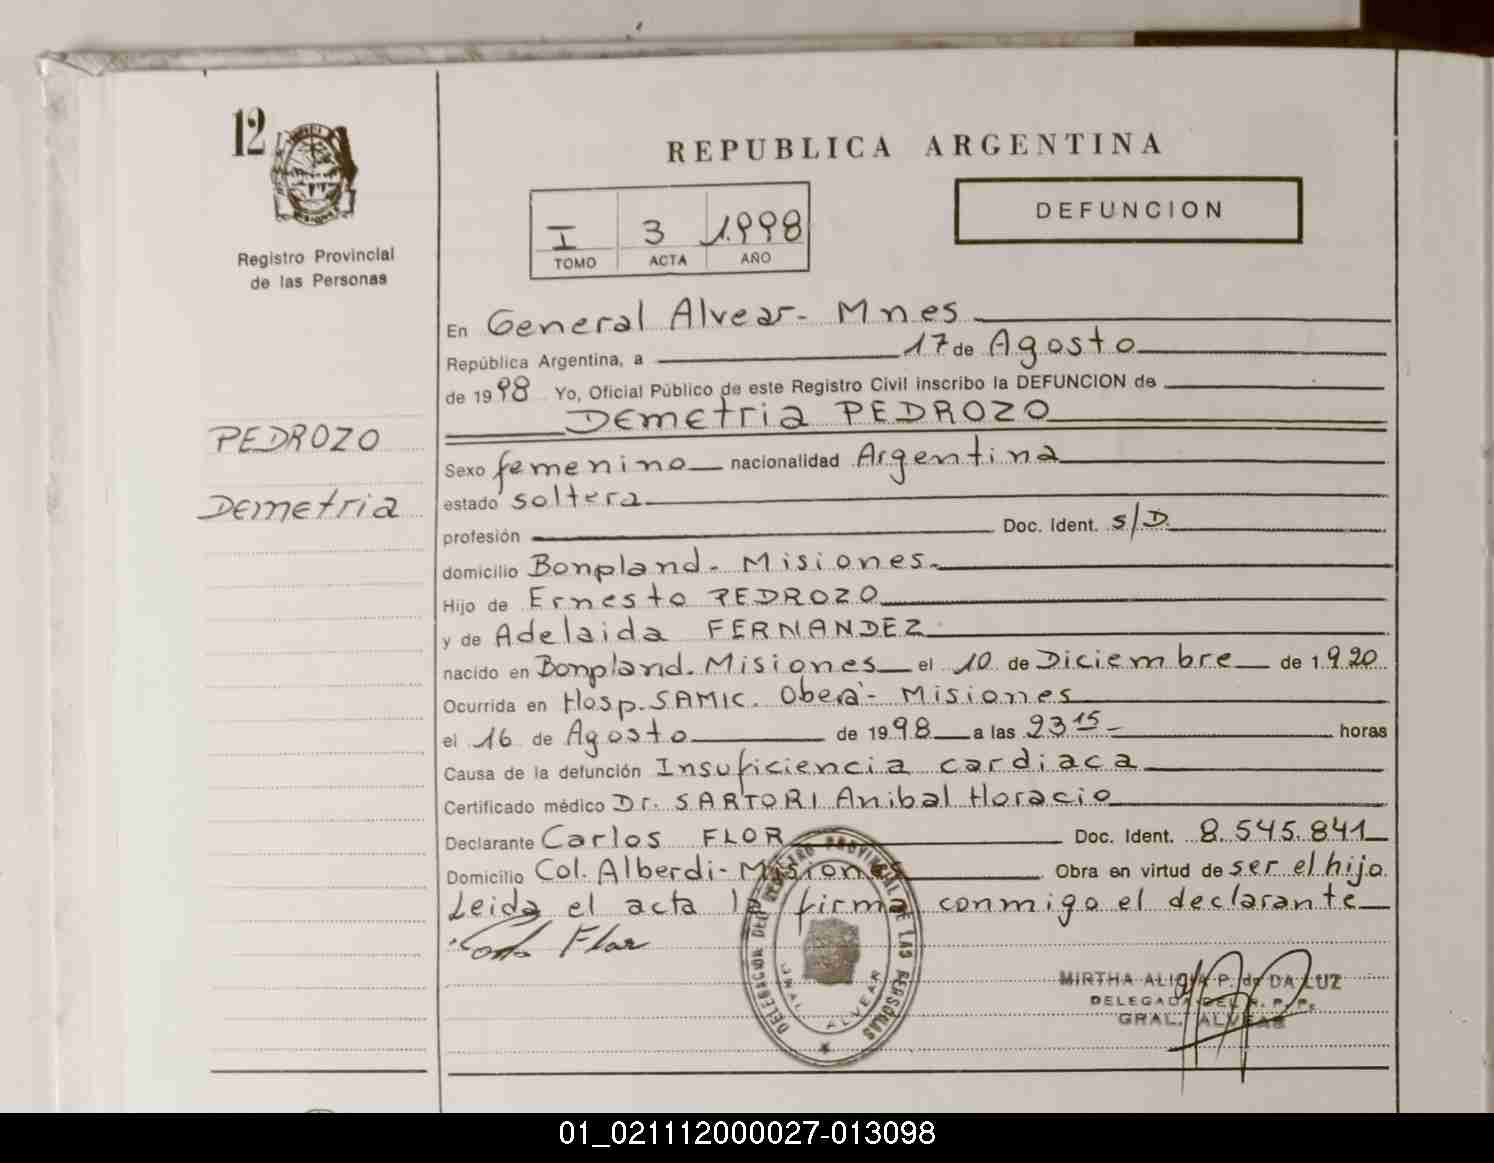 12
Registro Provincial
de las Personas
PEDROZO
Demetria
REPUBLICA ARGENTINA
I 3 1.998
TOMO ACTA AÑO
DEFUNCION
En General Alvear - Mnes
República Argentina, a 17 de Agosto
de 1998 Yo, Oficial Público de este Registro Civil inscribo la DEFUNCION de
Demetria PEDROZO
Sexo femenino nacionalidad Argentina
estado soltera
profesión Doc. Ident. S/D.
domicilio Bonpland - Misiones.
Hijo de Ernesto PEDROZO
y de Adelaida FERNANDEZ
nacido en Bonpland. Misiones el 10 de Diciembre de 1.920
Ocurrida en Hosp. SAMIC. Oberá - Misiones
el 16 de Agosto de 1998 a las 23 15 horas
Causa de la defunción Insuficiencia cardiaca
Certificado médico Dr. SARTORI Anibal Horacio
Declarante Carlos FLOR Doc. Ident. 8.545.841
Domicilio Col. Alberdi - Misiones Obra en virtud de ser el hijo.
Leida el acta la firma conmigo el declarante
Carlos Flor
DELEGACION DEL REGISTRO PROVINCIAL DE LAS PERSONAS
GRAL. ALVEAR
MIRTHA ALICIA P. de DA LUZ
DELEGADA DEL R. P. P.
GRAL. ALVEAR
01_021112000027-013098